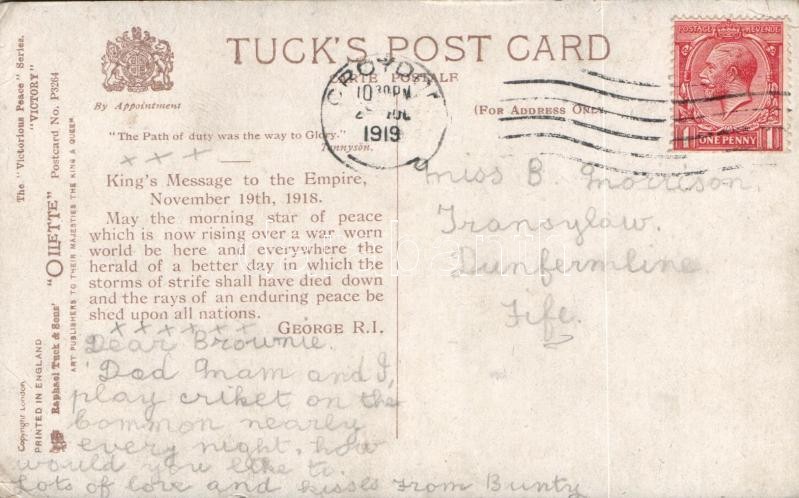 The "Victorious Peace" Series.
"VICTORY"
"OILETTE" Postcard No. P3264
Raphael Tuck & Sons'
ART PUBLISHERS TO THEIR MAJESTIES THE KING & QUEEN
Copyright London
PRINTED IN ENGLAND
By Appointment
TUCK'S POST CARD
CARTE POSTALE
(FOR ADDRESS ONLY
"The Path of duty was the way to Glory."
Tennyson.
x x x
King's Message to the Empire,
November 19th, 1918.
May the morning star of peace
which is now rising over a war worn
world be here and everywhere the
herald of a better day in which the
storms of strife shall have died down
and the rays of an enduring peace be
shed upon all nations.
GEORGE R.I.
x x x x x x x
Dear Brownie.
Dad Mam and I,
play criket on the
common nearly
every night, how
would you like to.
Lots of love and kisses From Bunty
CROYDON
10 30PM
JUL
1919
POSTAGE REVENUE
1 ONE PENNY 1
Miss B. Morrison.
Transylaw.
Dunfermline
Fife.